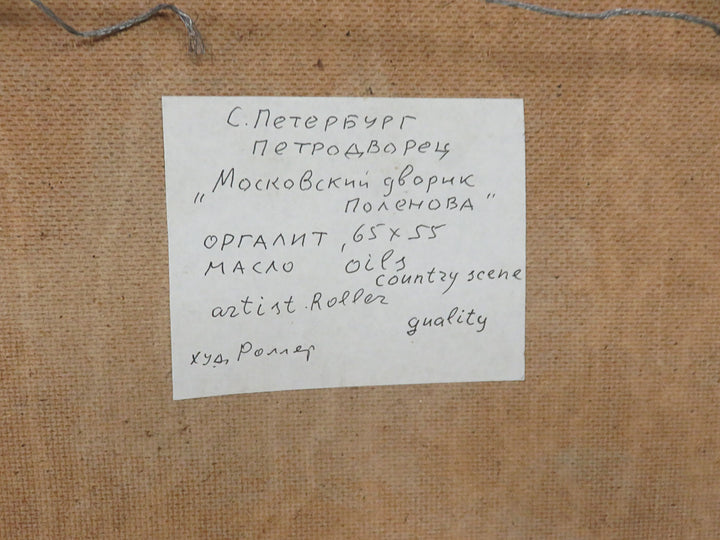 С. ПЕТЕРБУРГ
ПЕТРОДВОРЕЦ
„Московский дворик
ПОЛЕНОВА"
ОРГАЛИТ, 65 x 55
МАСЛО oils
country scene
artist. Roller
quality
худ. Роллер